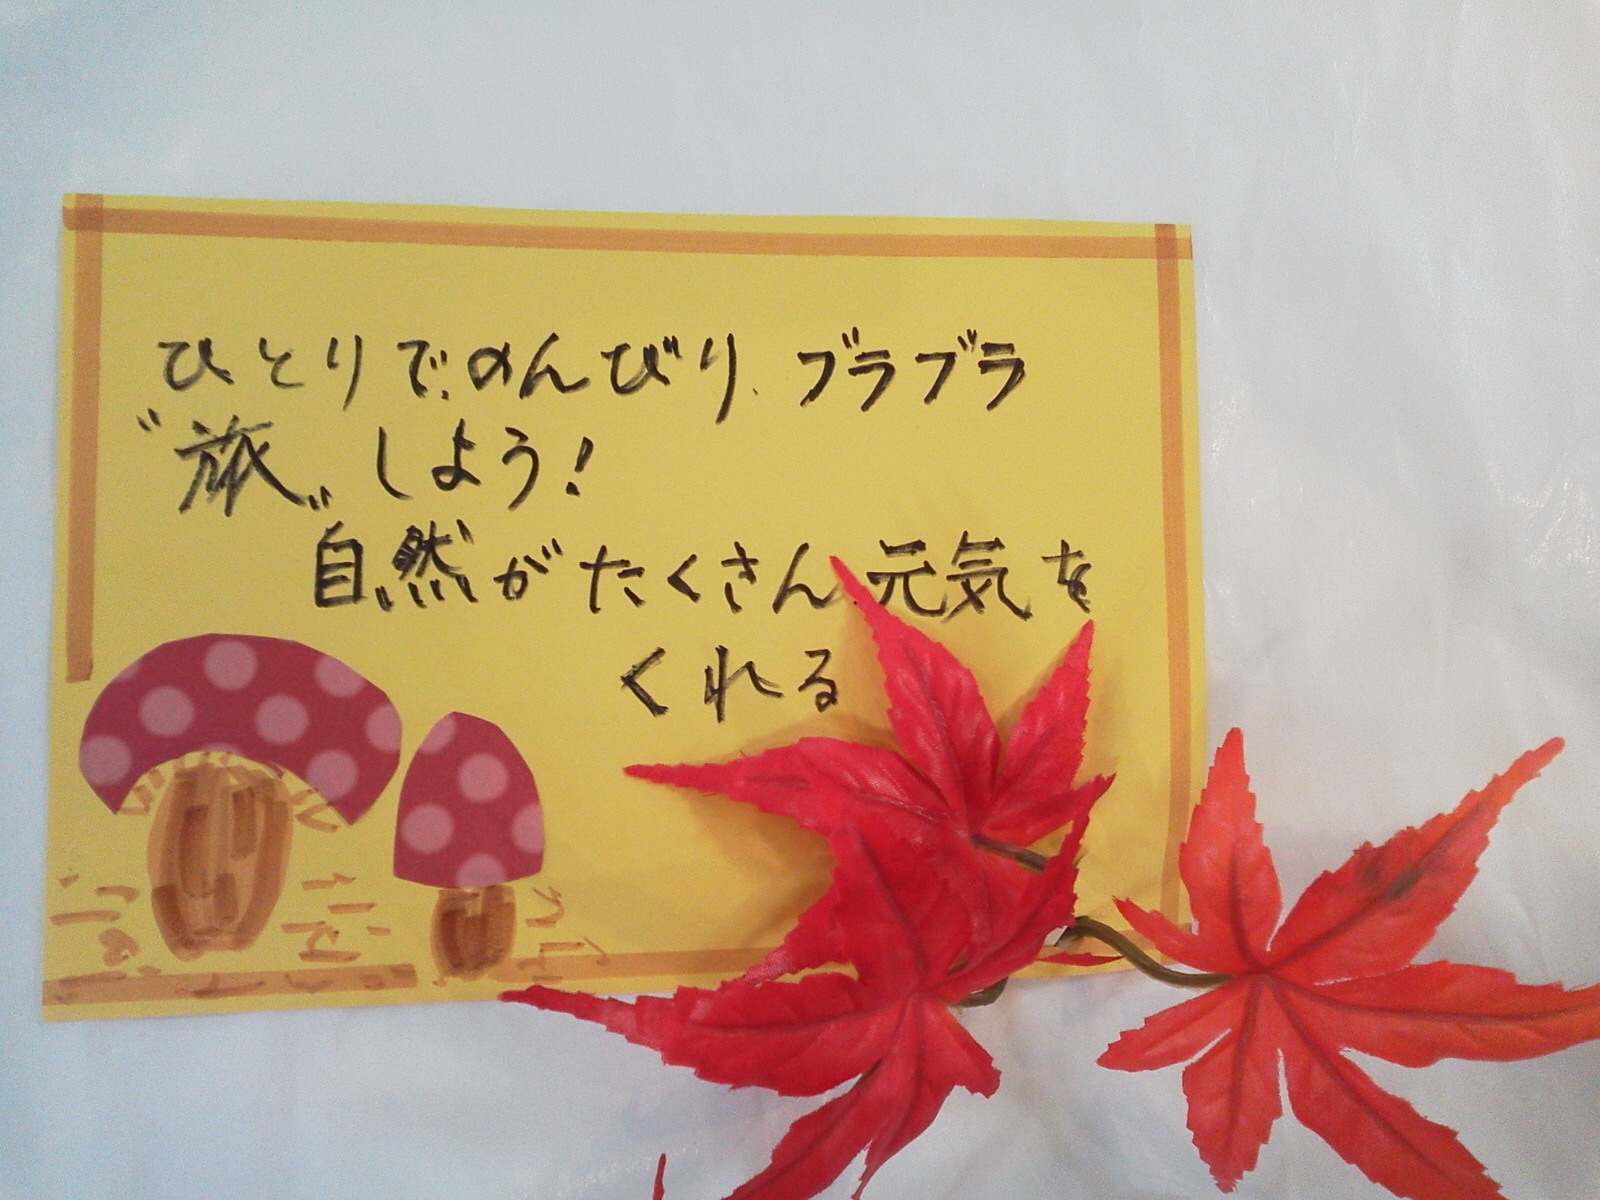 ひとりでのんびり、ブラブラ
〝旅〟しよう!
自然がたくさん元気を
くれる